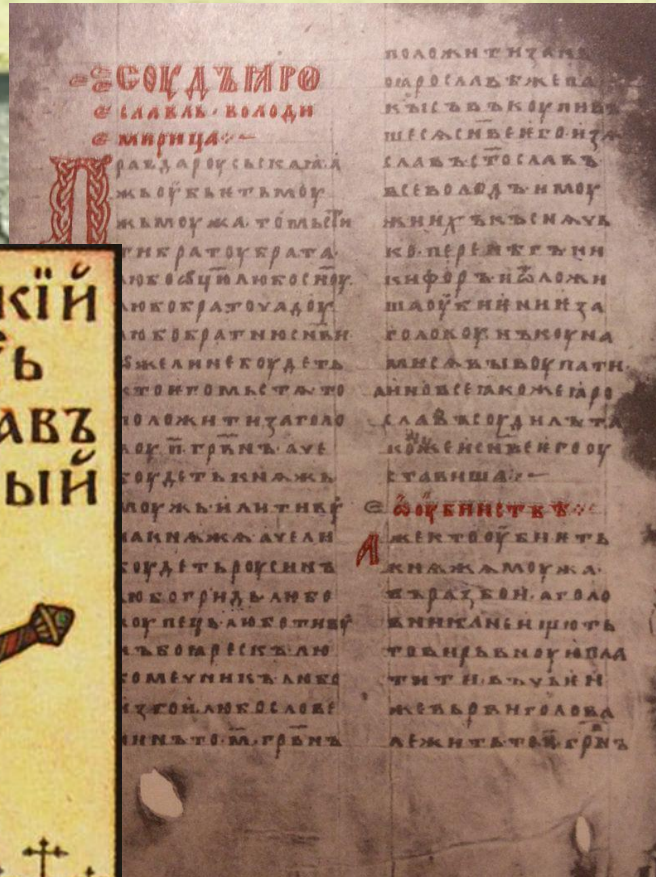 кїй
ь
авъ
ый
СОУДЪ ꙖРО
СЛАВЛЬ · ВОЛОДИ
МИРИЦА
Правда роусьскаꙗ · а
жь оубьеть моу
жь моужа · то мьсти
ти братоу брата ·
любо ѿцю любо сн҃оу
любо братоучадоу
любо братню сн҃ви
ѡже ли не боудеть
кто его мьстѧ то
положити за голо
воу · п҃ · грв҃нъ · аче
боудеть кнѧжь
моужь или тиву
на кнѧжѧ аче ли
боудеть роусинъ
любо гридь любо
коупець любо тиву
нъ боꙗрескъ лю
бо мечникъ любо
изгои любо слове
нинъ то · м҃ · грв҃нъ
положити за нь
по ꙗрославѣ же па
кы съвъкоупивъ
шесѧ сн҃ве его · изѧ
славъ ст҃ославъ
всеволодъ и моу
жи ихъ къснѧчь
ко · перенѣгъ ни
кифоръ и ѿложи
ша оубиение за
головоу нъ коуна
ми сѧ выкоупати
а ино все ꙗкоже ꙗро
славъ соудилъ та
коже и сн҃ве его оу
ставиша
ѡ оубииствѣ
Аже кто оубиеть
кнѧжа моужа
въ разбои · а голо
вника не ищють
то вирьвноую пла
тити · въ чьеи
же верви голова
лежить то · п҃ · грв҃нъ